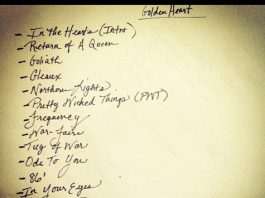 Golden Heart
- In the Hearts (Intro)
- Return of A Queen
- Goliath
- Gleaux
- Northern Lights
- Pretty Wicked Things (PWT)
- Frequency
- War-Faire
- Tug of War
- Ode To You
- 86'
- In Your Eyes